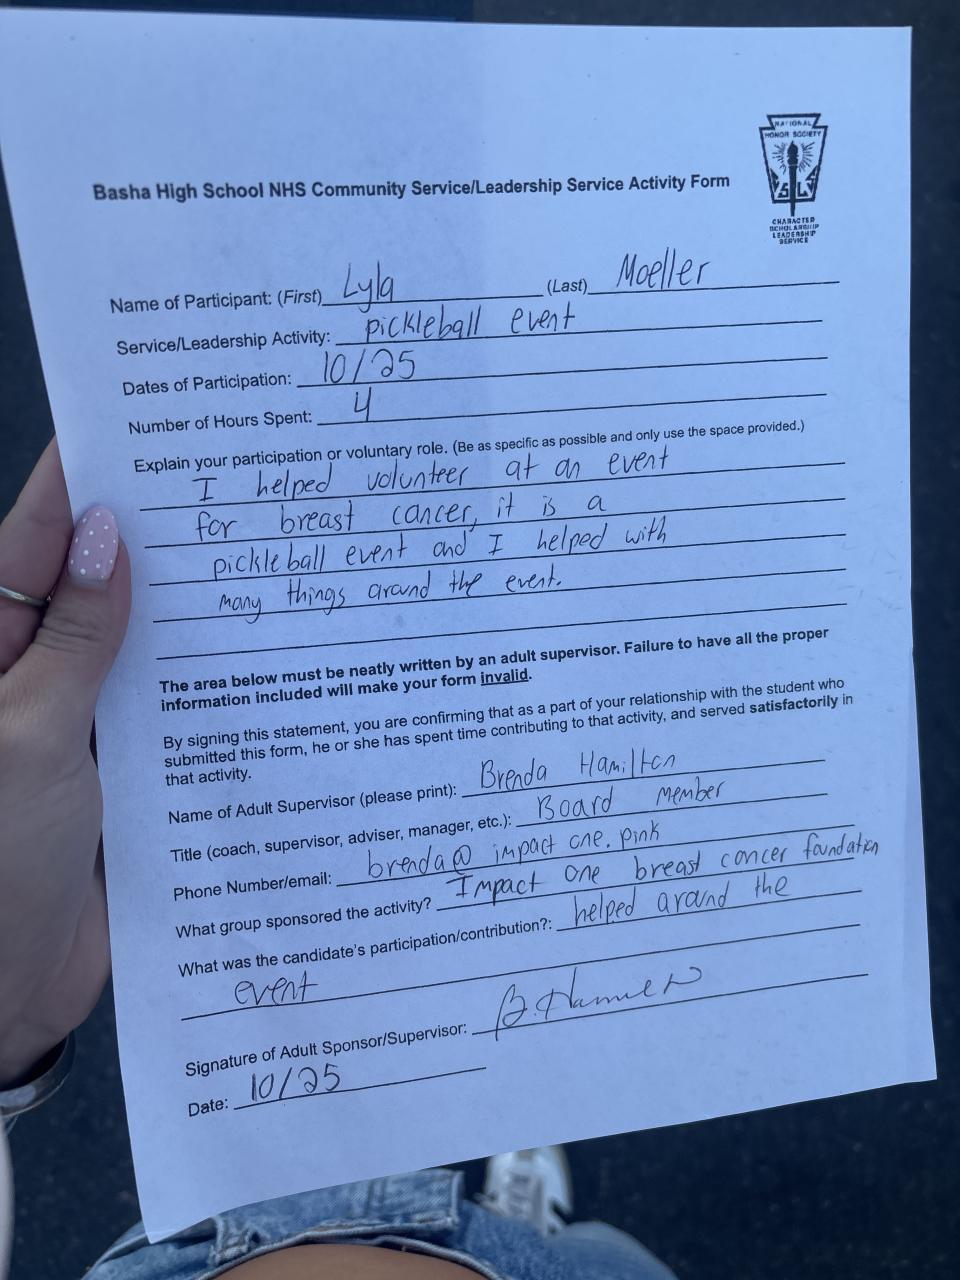 NATIONAL
HONOR SOCIETY
S L
CHARACTER
SCHOLARSHIP
LEADERSHIP
SERVICE
Basha High School NHS Community Service/Leadership Service Activity Form
Name of Participant: (First) Lyla (Last) Moeller
Service/Leadership Activity: pickleball event
Dates of Participation: 10/25
Number of Hours Spent: 4
Explain your participation or voluntary role. (Be as specific as possible and only use the space provided.)
I helped volunteer at an event
for breast cancer, it is a
pickleball event and I helped with
many things around the event.
The area below must be neatly written by an adult supervisor. Failure to have all the proper
information included will make your form invalid.
By signing this statement, you are confirming that as a part of your relationship with the student who
submitted this form, he or she has spent time contributing to that activity, and served satisfactorily in
that activity.
Name of Adult Supervisor (please print): Brenda Hamilton
Title (coach, supervisor, adviser, manager, etc.): Board Member
Phone Number/email: brenda@ impact one. pink
What group sponsored the activity? Impact One breast cancer foundation
What was the candidate's participation/contribution?: helped around the
event
Signature of Adult Sponsor/Supervisor:
Date: 10/25